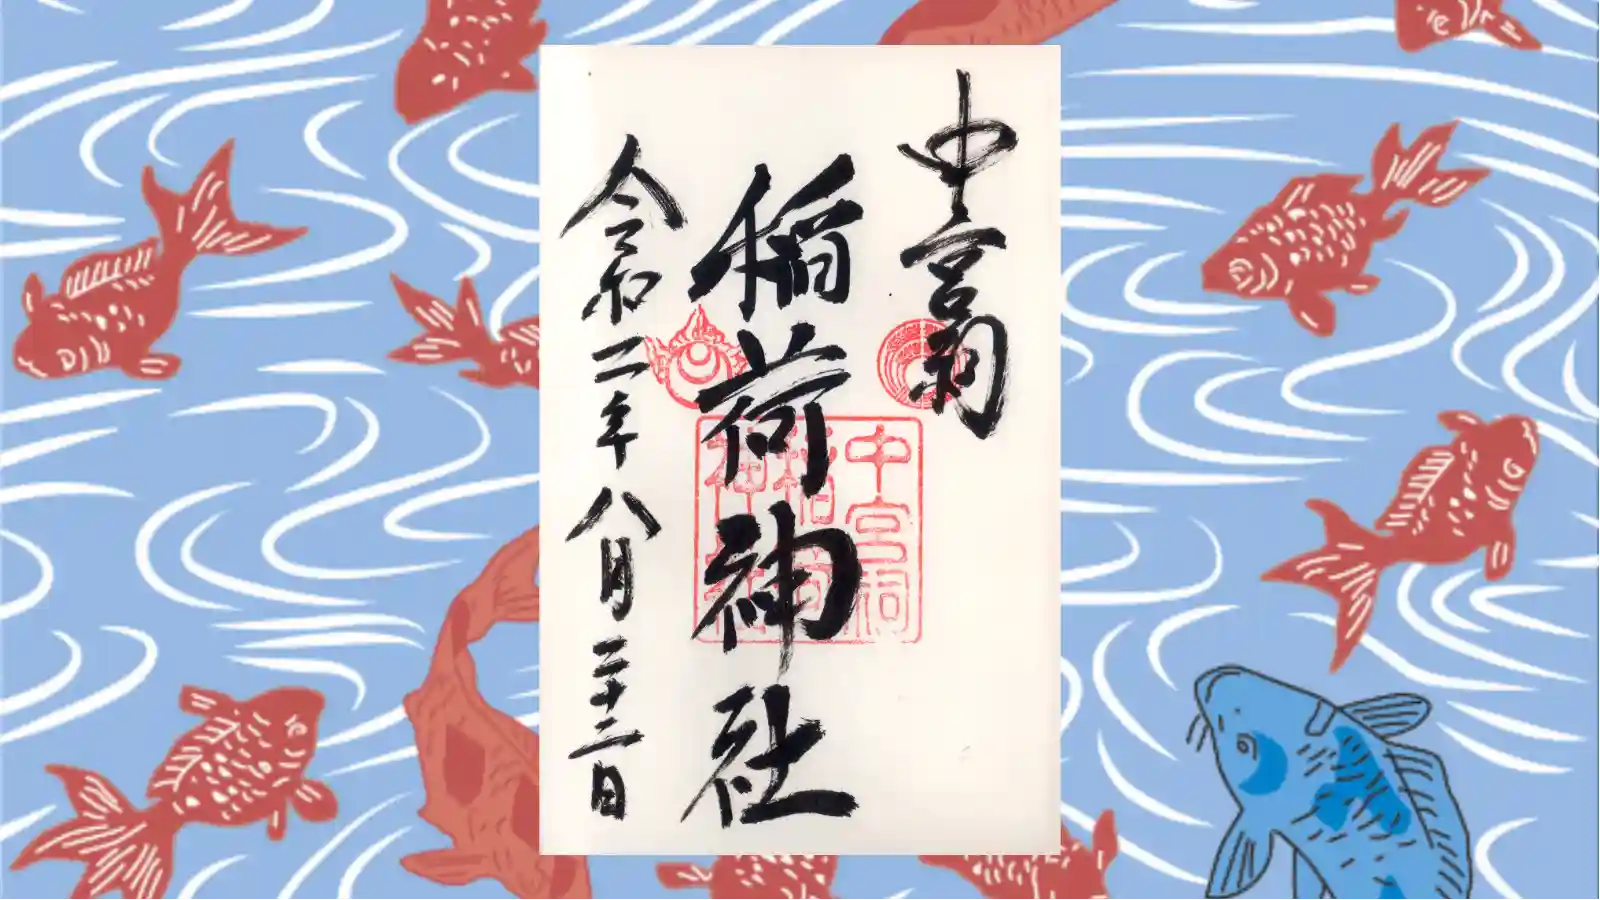 中宮祠
稲荷神社
令和二年八月二十二日
中宮祠